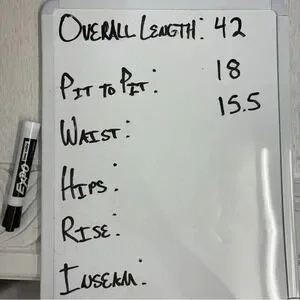 OVERALL LENGTH: 42
PIT TO PIT: 18
WAIST: 15.5
HIPS:
RISE:
INSEAM:
EXPO